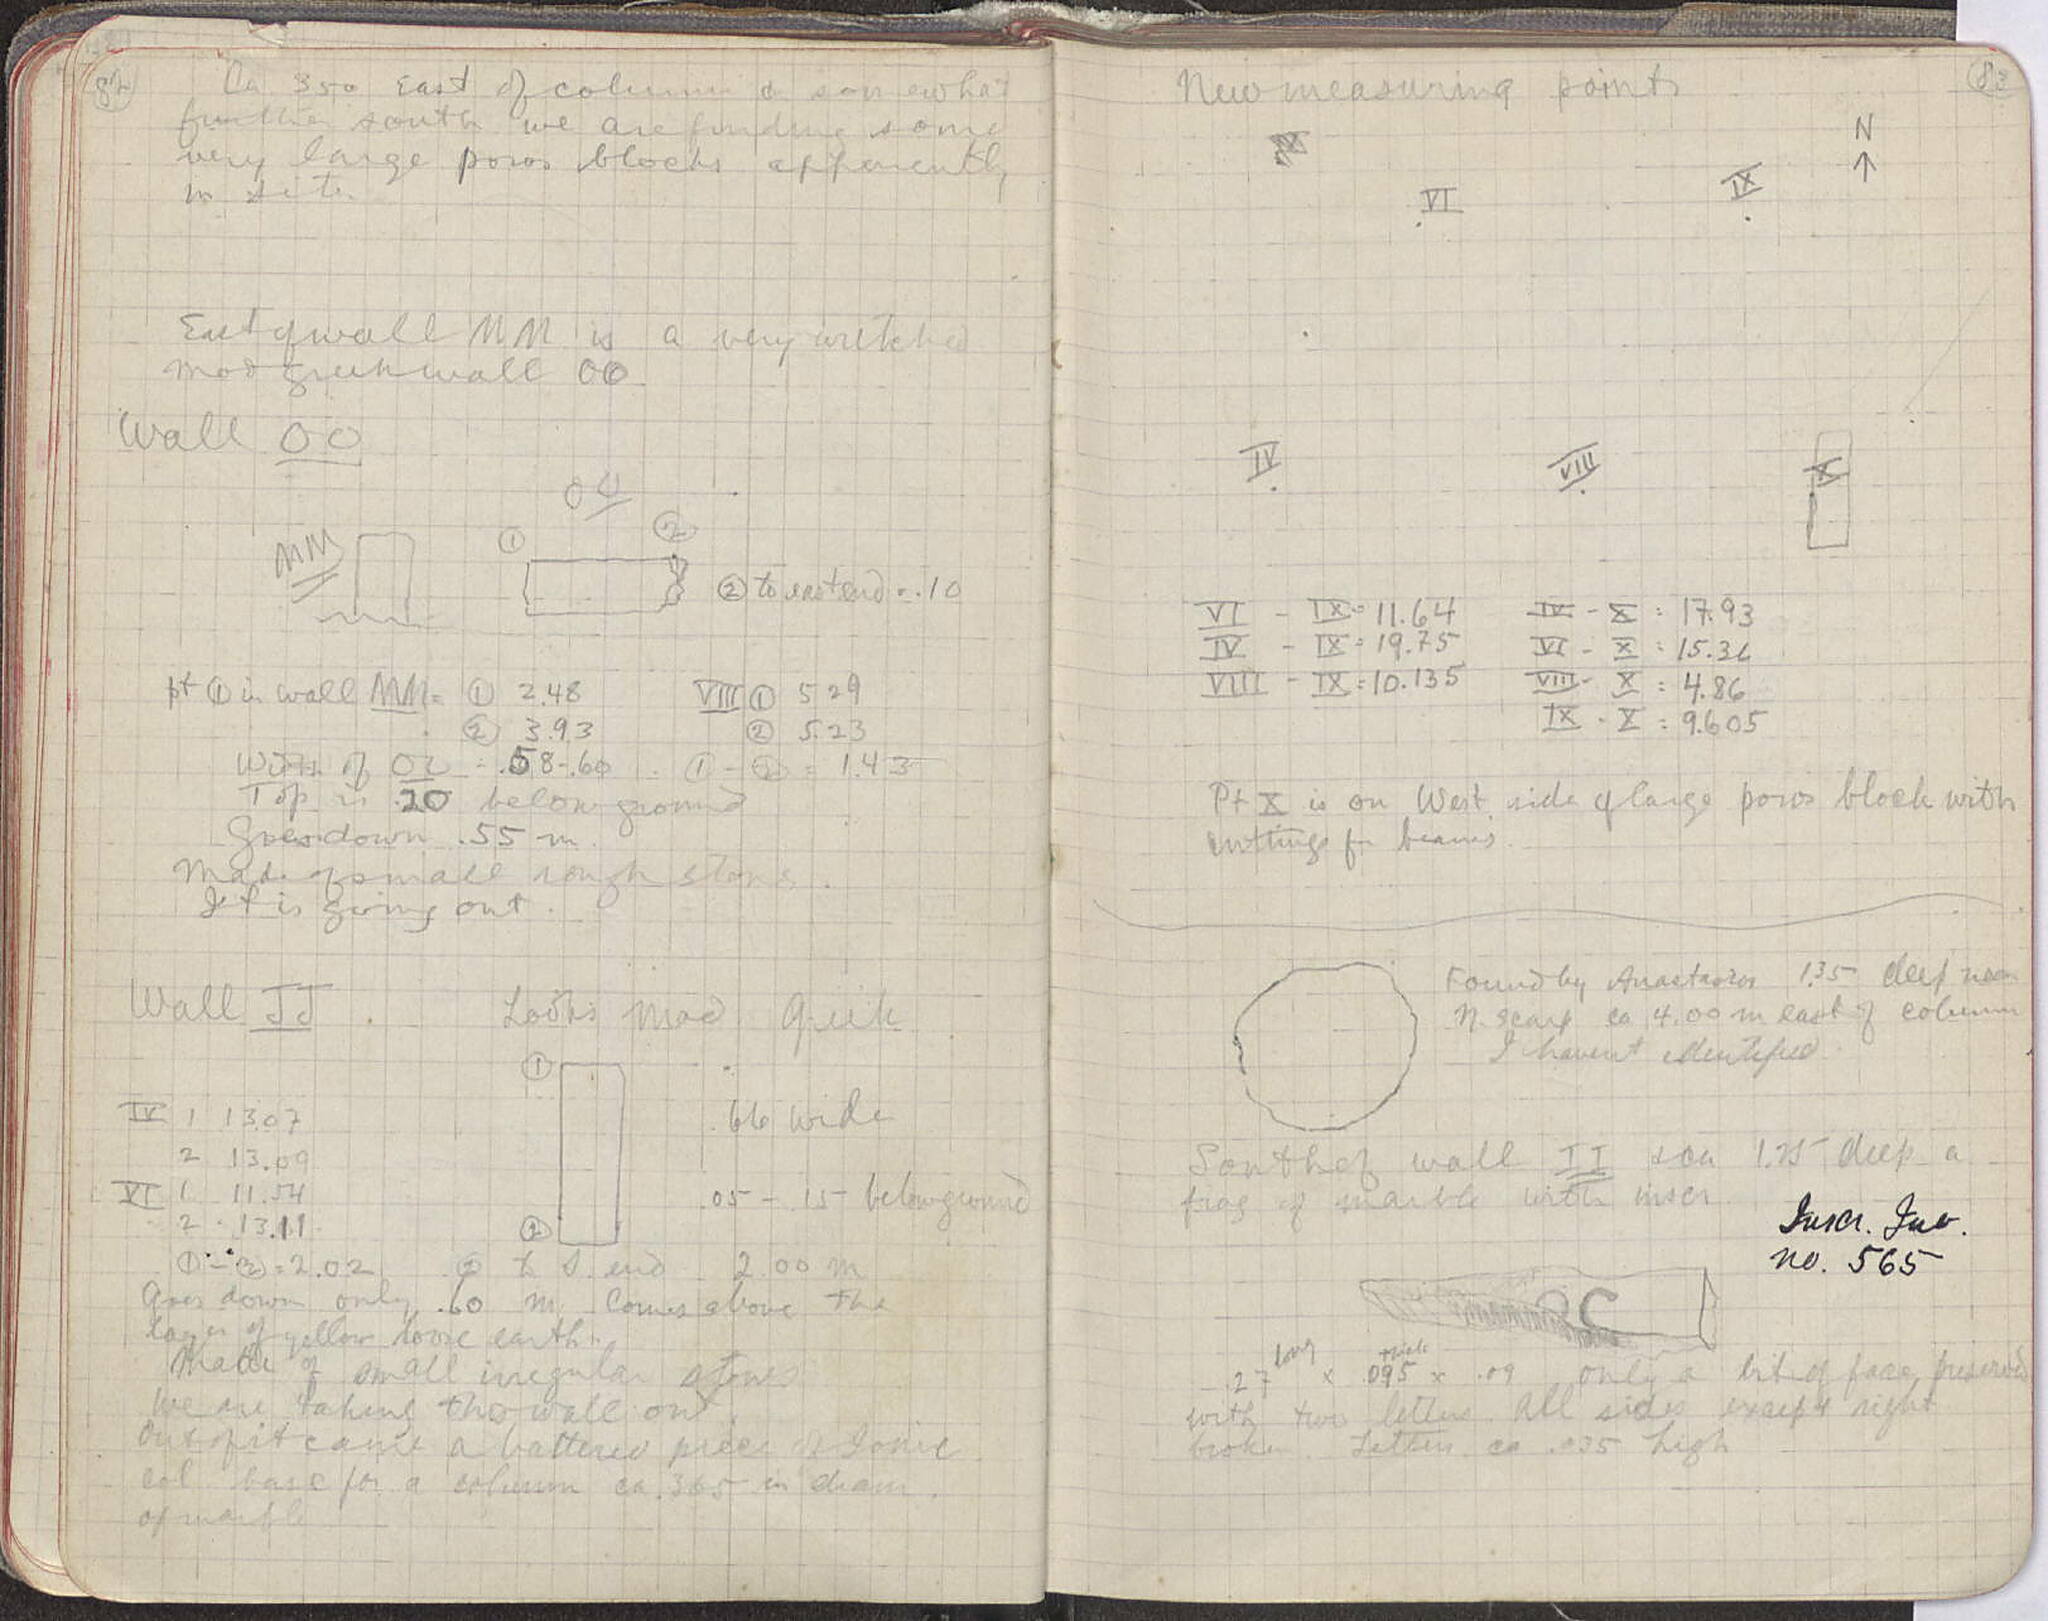 82
Ca 350 East of column & somewhat
further south we are finding some
very large poros blocks apparently
in situ.
East of wall MM is a very wretched
mod greek wall OO
Wall OO
OO
MM
① ②
② to east end = .10
pt ① in wall MM = ① 2.48 VIII ① 5 29
② 3.93 ② 5.23
Width of OO = .58-.60 ① - ② = 1.43
Top is .20 below ground
Goes down .55 m.
Made of small rough stones.
It is going out.
Wall JJ Looks Mod Greek
①
IV 1 13.07 .66 wide
2 13.09
VI 1 11.54 .05 - .15 below ground
2 13.11
②
① - ② = 2.02 ② to S. end 2.00 m
Goes down only .60 m Comes above the
layer of yellow loose earth.
Made of small irregular stones
We are taking this wall out.
Out of it came a battered piece of Ionic
col. base for a column ca .365 in diam.
of marble
83
New measuring points
N
VI IX
IV VIII X
VI - IX = 11.64 IV - X = 17.93
IV - IX = 19.75 VI - X = 15.36
VIII - IX = 10.135 VIII - X = 4.86
IX - X = 9.605
Pt X is on West side of large poros block with
cuttings for beams.
Found by Anastasios 1.35 deep near
N. scarp ca 4.00 m east of column
I havent identified.
South of wall II ca 1.25 deep a
frag of marble with inscr.
Inscr. Inv.
no. 565
.27 long × .095 thick × .09 only a bit of face preserved
with two letters All sides except right
broken Letters ca .035 high